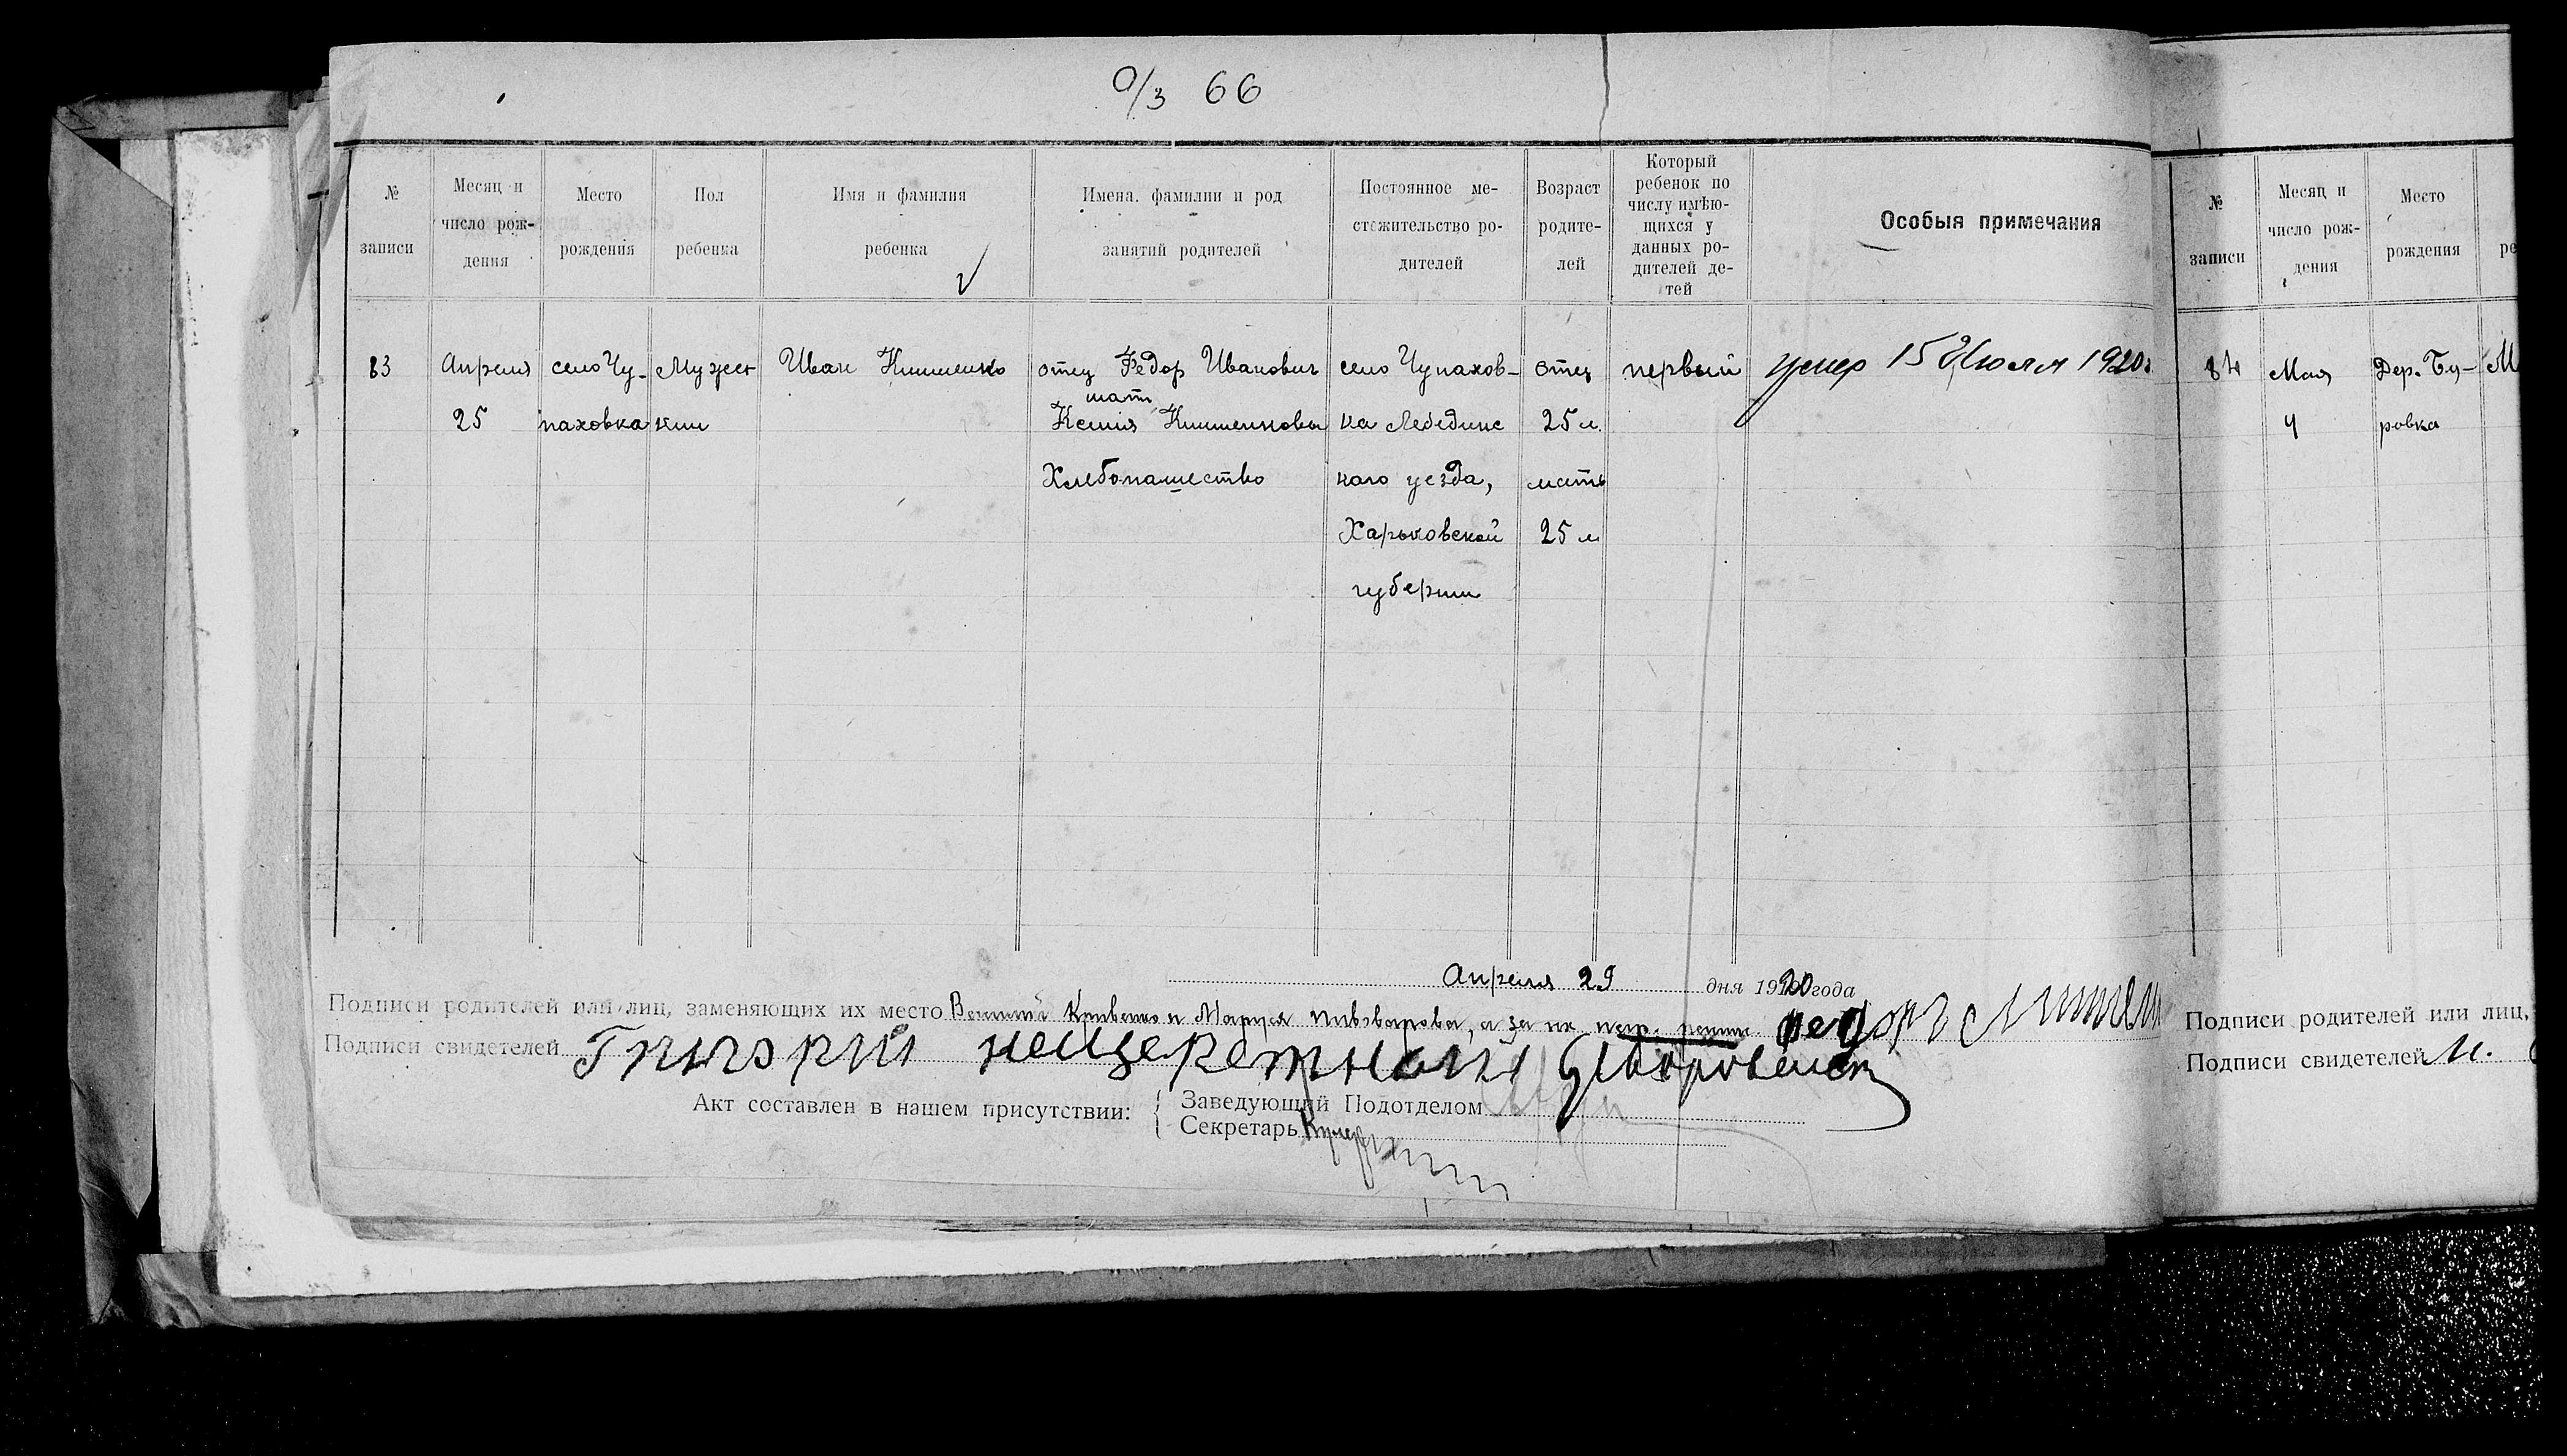 0/3 66
№ записи
Месяц и число рождения
Место рождения
Пол ребенка
Имя и фамилия ребенка
Имена, фамилии и род занятий родителей
Постоянное местожительство родителей
Возраст родителей
Который ребенок по числу имѣющихся у данных родителей детей
Особыя примечания
83 Апреля село Чу- Мужес Иван отец Федор Иванович село Чупахов- отец первый умер 15 Июля 1920 г
мать
25 паховка кии Ксения ка Лебединс 25 л.
Хлебопашество каго уезда, мать
Харьковской 25 л
губернии
Апреля 29 дня 1920 года
Подписи родителей или лиц, заменяющих их место и Маруся Пивоварова, а за их негр.
Подписи свидетелей Григорий
Акт составлен в нашем присутствии:
Заведующий Подотделом
Секретарь
№ записи
Месяц и число рождения
Место рождения
ре
84 Мая Дер. Бу- М
4 ровка
Подписи родителей или лиц,
Подписи свидетелей